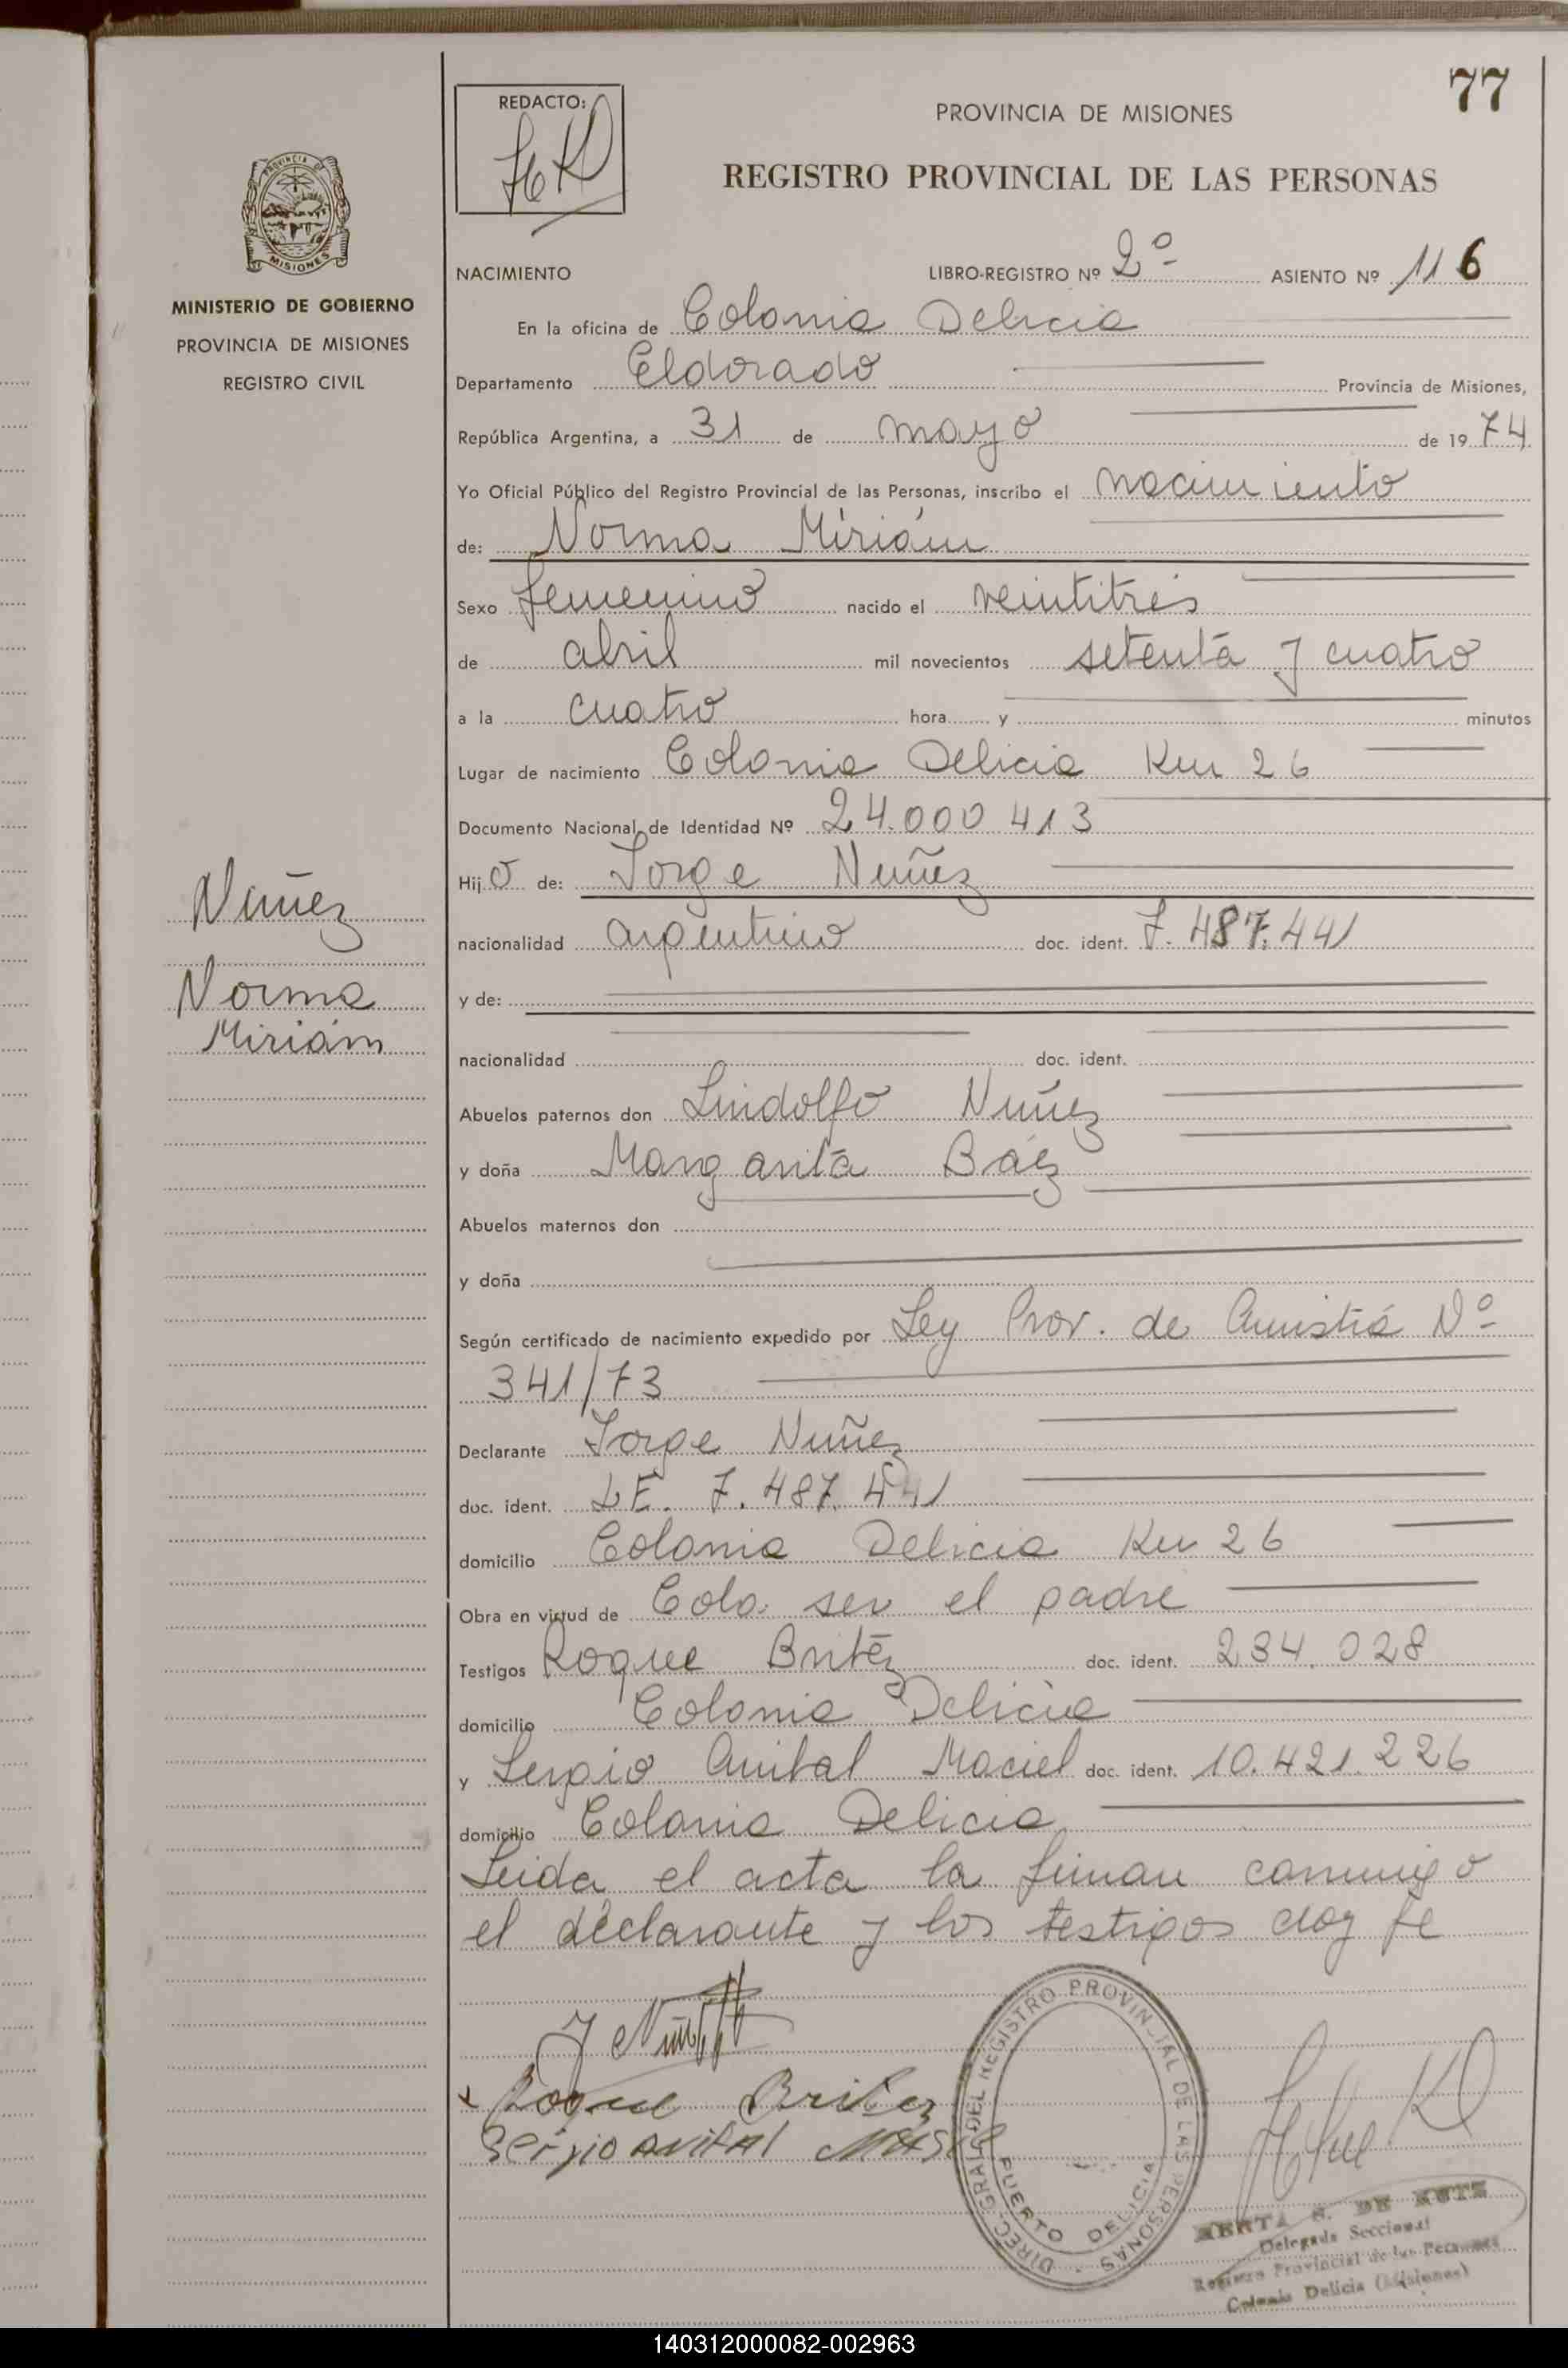 77
REDACTO:
PROVINCIA DE MISIONES
REGISTRO PROVINCIAL DE LAS PERSONAS
PROVINCIA DE
MISIONES
MINISTERIO DE GOBIERNO
PROVINCIA DE MISIONES
REGISTRO CIVIL
NACIMIENTO LIBRO-REGISTRO Nº 2º ASIENTO Nº 116
En la oficina de Colonia Delicia
Departamento Eldorado Provincia de Misiones,
República Argentina, a 31 de mayo de 1974
Yo Oficial Público del Registro Provincial de las Personas, inscribo el nacimiento
de: Norma Miriám
Sexo femenino nacido el veintitrés
de abril mil novecientos setenta y cuatro
a la cuatro hora y minutos
Lugar de nacimiento Colonia Delicia Km 26
Documento Nacional de Identidad Nº 24.000 413
Hijo de: Jorge Nuñez
nacionalidad argentino doc. ident. 7.487.441
y de:
nacionalidad doc. ident.
Nuñez
Norma
Miriám
Abuelos paternos don Lindolfo Nuñez
y doña Margarita Báez
Abuelos maternos don
y doña
Según certificado de nacimiento expedido por Ley Prov. de Amnistiá Nº
341/73
Declarante Jorge Nuñez
doc. ident. L.E. 7.487.441
domicilio Colonia Delicia Km 26
Obra en virtud de Cola ser el padre
Testigos Roque Britéz doc. ident. 234.028
domicilio Colonia Delicia
y Sergio Anibal Maciel doc. ident. 10.421.226
domicilio Colonia Delicia
Leida el acta la firman conmigo
el declarante y los testigos doy fe
J Nuñez
Roque Britez
Sergio Anibal
DIREC. GRAL. DEL REGISTRO PROVINCIAL DE LAS PERSONAS
PUERTO DELICIA
HERTA S. DE
Delegada Seccional
Registro Provincial de las Personas
Colonia Delicia (Misiones)
140312000082-002963